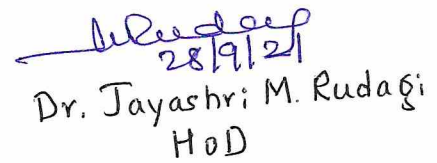 28/9/21
Dr. Jayashri M. Rudagi
HoD